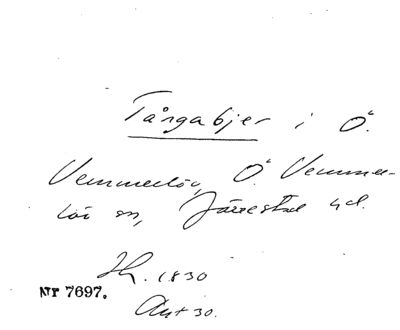 Tångabjer i Ö.
Vemmerlöv, Ö. Vemmer-
löv sn, Järrestad hd.
Jh. 1830
Nr 7697.
Akt 30.